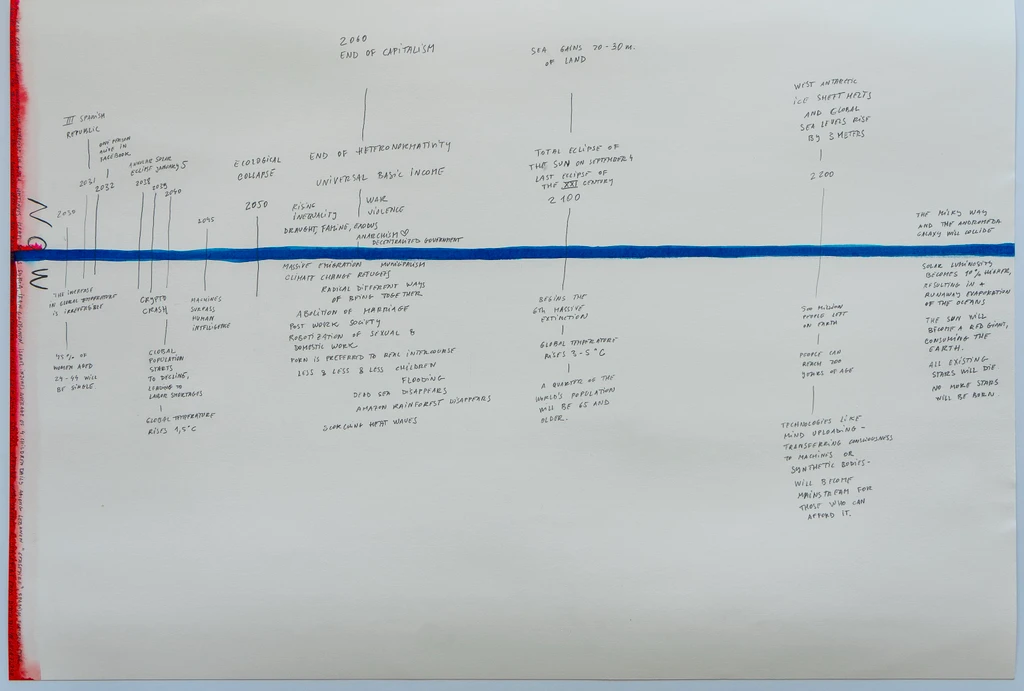 2060
END OF CAPITALISM
SEA GAINS 20-30 m.
OF LAND
WEST ANTARCTIC
ICE SHEET MELTS
AND GLOBAL
SEA LEVELS RISE
BY 3 METERS
III SPANISH
REPUBLIC
ONE PERSON
ALIVE IN
FACEBOOK
ANNULAR SOLAR
ECLIPSE JANUARY 5
2031
2032
2038
2039
2040
ECOLOGICAL
COLLAPSE
END OF HETERONORMATIVITY
UNIVERSAL BASIC INCOME
TOTAL ECLIPSE OF
THE SUN ON SEPTEMBER 4
LAST ECLIPSE OF
THE XXI CENTURY
2100
2200
2030
2045
2050
RISING
INEQUALITY
WAR
VIOLENCE
DRAUGHT, FAMINE, EXODUS
ANARCHISM ♡
DECENTRALIZED GOVERNMENT
THE MILKY WAY
AND THE ANDROMEDA
GALAXY WILL COLLIDE
NOW
THE INCREASE
IN GLOBAL TEMPERATURE
IS IRREVERSIBLE
45% OF
WOMEN AGED
25-44 WILL
BE SINGLE
CRYPTO
CRASH
GLOBAL
POPULATION
STARTS
TO DECLINE,
LEADING TO
LABOR SHORTAGES
GLOBAL TEMPERATURE
RISES 1,5°C
MACHINES
SURPASS
HUMAN
INTELLIGENCE
MASSIVE EMIGRATION MUNICIPALISM
CLIMATE CHANGE REFUGEES
RADICAL DIFFERENT WAYS
OF BEING TOGETHER
ABOLITION OF MARRIAGE
POST WORK SOCIETY
ROBOTIZATION OF SEXUAL &
DOMESTIC WORK
PORN IS PREFERED TO REAL INTERCOURSE
LESS & LESS & LESS CHILDREN
FLOODING
DEAD SEA DISAPPEARS
AMAZON RAINFOREST DISAPPEARS
SCORCHING HEAT WAVES
BEGINS THE
6TH MASSIVE
EXTINCTION
GLOBAL TEMPERATURE
RISES 3-5°C
A QUARTER OF THE
WORLD'S POPULATION
WILL BE 65 AND
OLDER.
500 MILLION
PEOPLE LEFT
ON EARTH
PEOPLE CAN
REACH 200
YEARS OF AGE
TECHNOLOGIES LIKE
MIND UPLOADING -
TRANSFERRING CONSCIOUSNESS
TO MACHINES OR
SYNTHETIC BODIES -
WILL BECOME
MAINSTREAM FOR
THOSE WHO CAN
AFFORD IT.
SOLAR LUMINOSITY
BECOMES 10% HIGHER,
RESULTING IN A
RUNAWAY EVAPORATION
OF THE OCEANS
THE SUN WILL
BECOME A RED GIANT,
CONSUMING THE
EARTH.
ALL EXISTING
STARS WILL DIE
NO MORE STARS
WILL BE BORN.